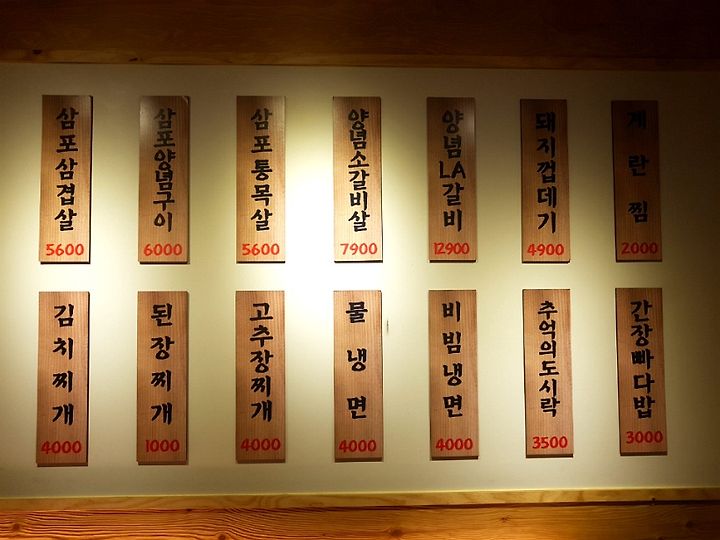 삼포삼겹살
5600
삼포양념구이
6000
삼포통목살
5600
양념소갈비살
7900
양념LA갈비
12900
돼지껍데기
4900
계란찜
2000
김치찌개
4000
된장찌개
1000
고추장찌개
4000
물냉면
4000
비빔냉면
4000
추억의도시락
3500
간장빠다밥
3000